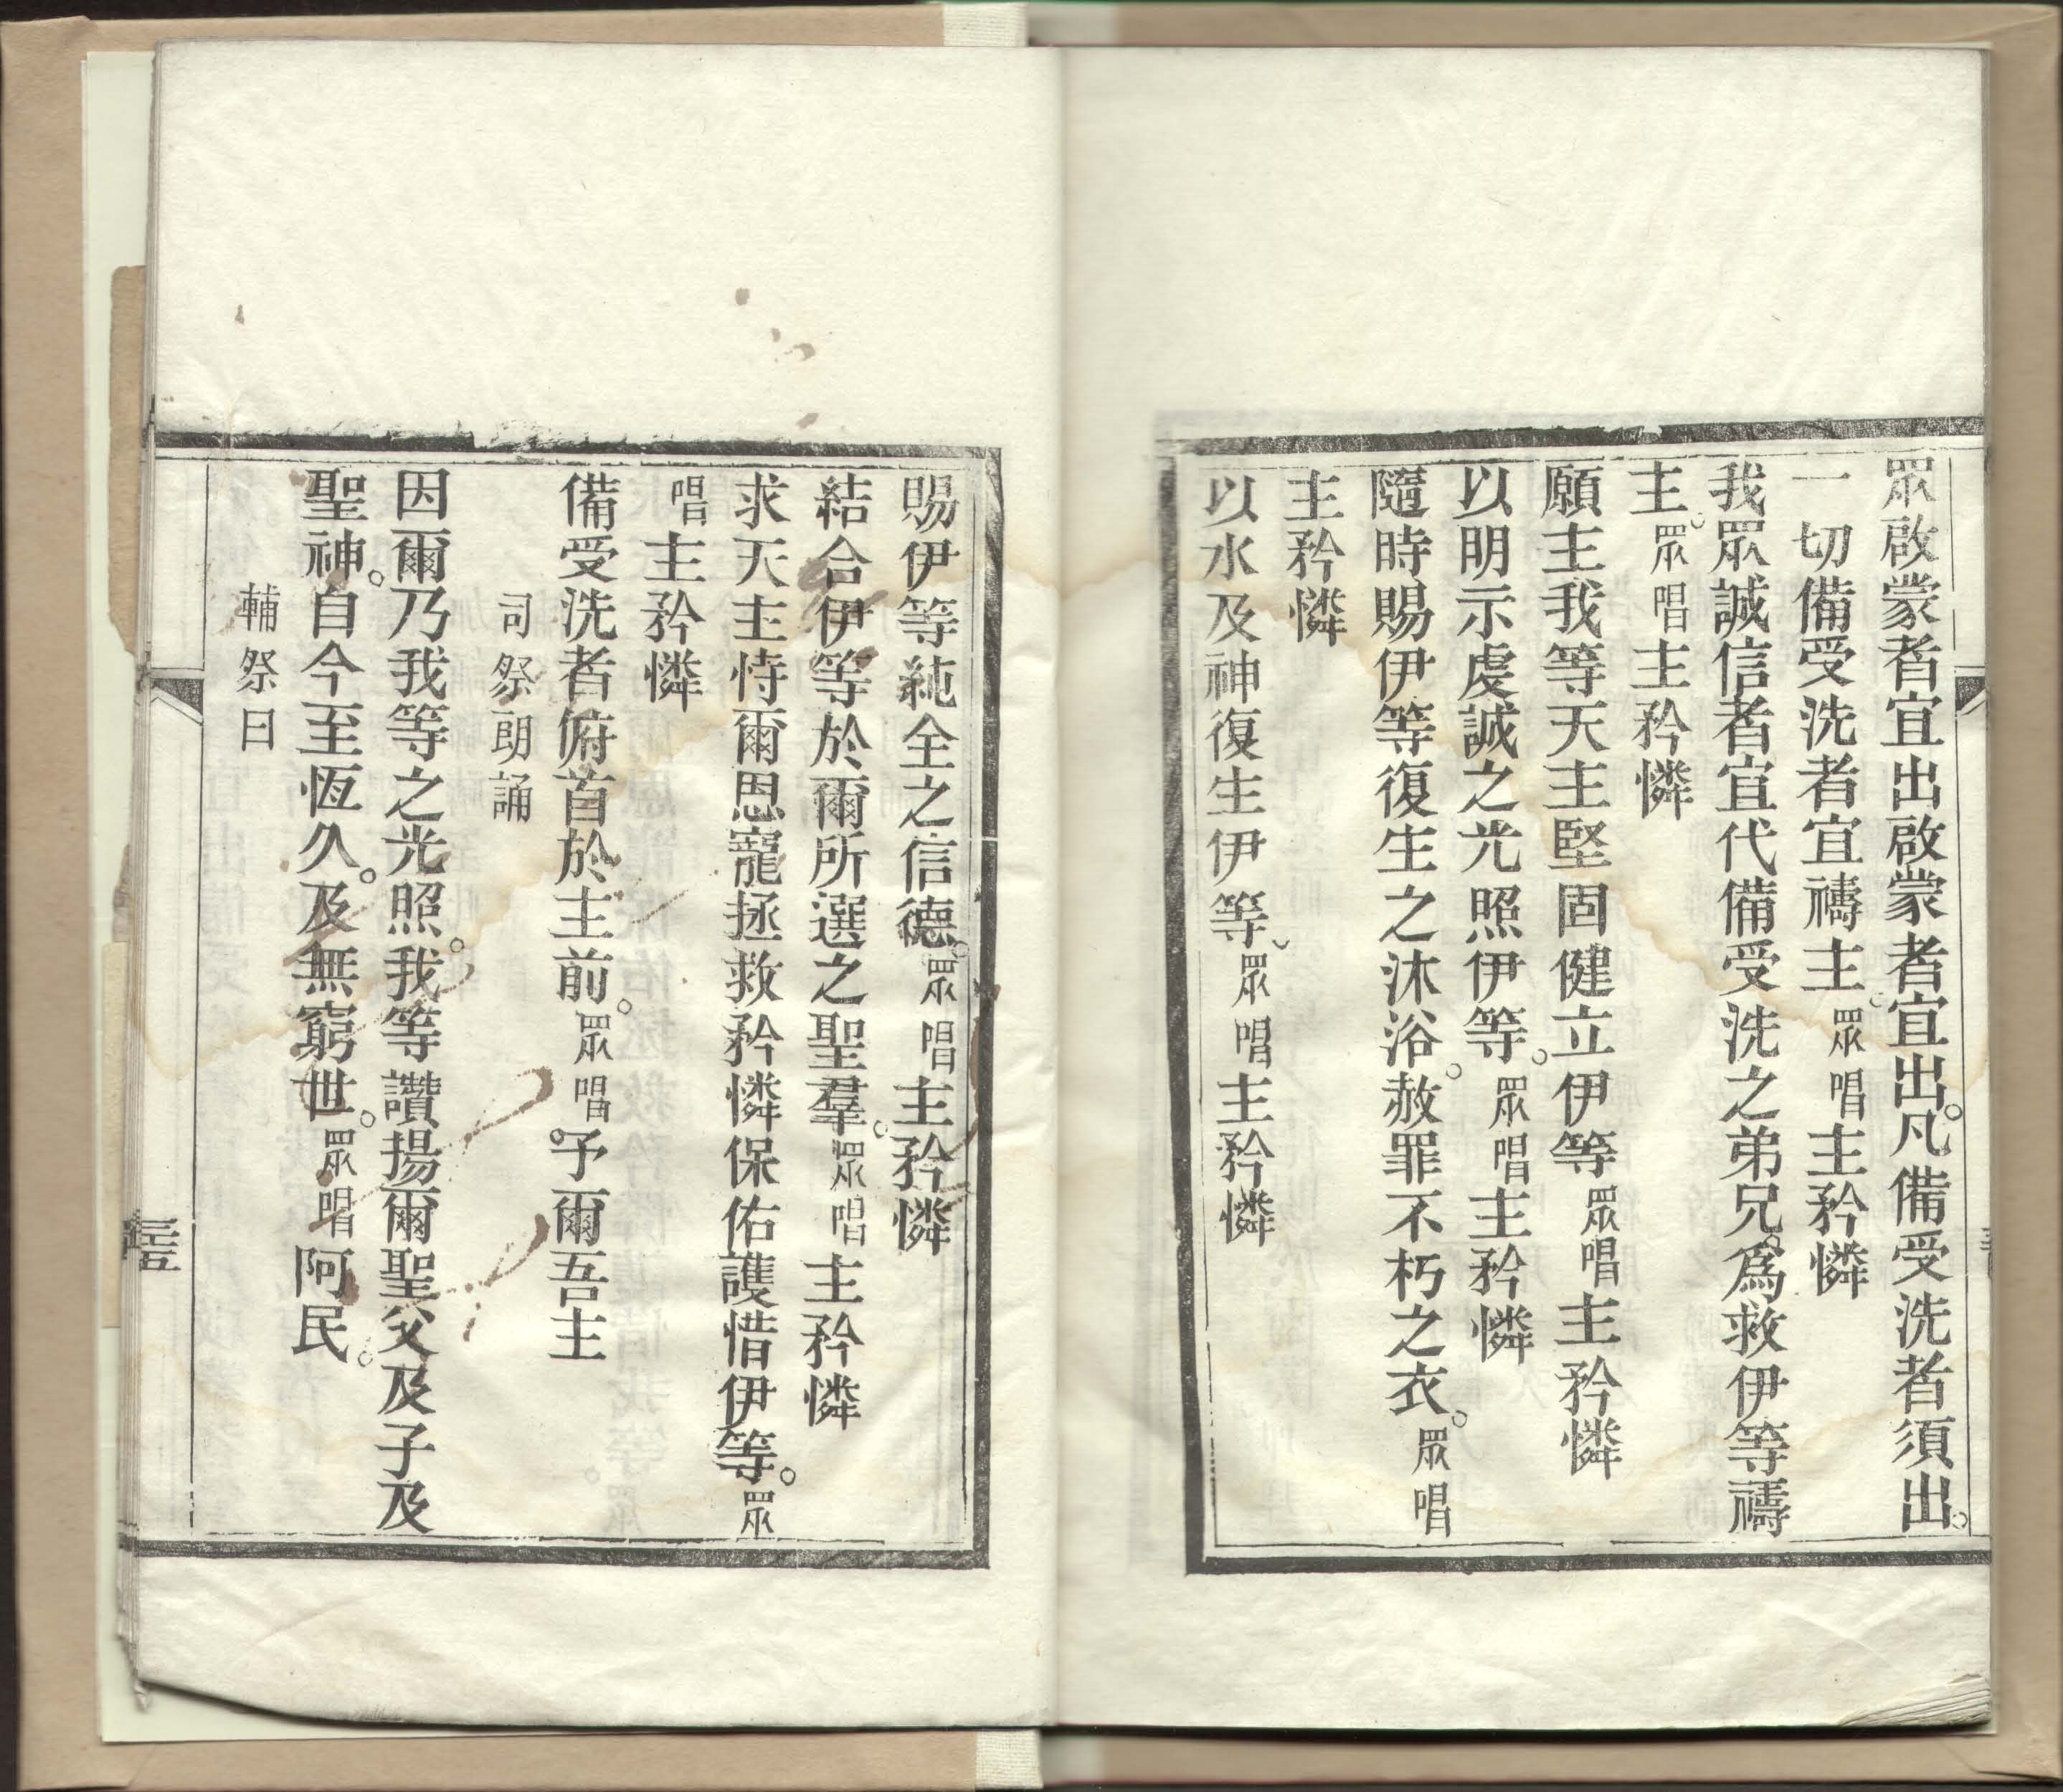 眾啟蒙者宜出啟蒙者宜出。凡備受洗者須出。
一切備受洗者宜禱主。眾唱主矜憐
我眾誠信者宜代備受洗之弟兄。爲救伊等禱
主。眾唱主矜憐
願主我等天主堅固健立伊等眾唱主矜憐
以明示虔誠之光照伊等。眾唱主矜憐
隨時賜伊等復生之沐浴。赦罪不朽之衣。眾唱
主矜憐
以水及神復生伊等。眾唱主矜憐
賜伊等純全之信德。眾唱主矜憐
結合伊等於爾所選之聖羣。眾唱主矜憐
求天主恃爾恩寵拯救矜憐保佑護惜伊等。眾
唱主矜憐
備受洗者俯首於主前。眾唱。予爾吾主
司祭朗誦
因爾乃我等之光照。我等讚揚爾聖父及子及
聖神。自今至恆久。及無窮世。眾唱阿民。
輔祭曰